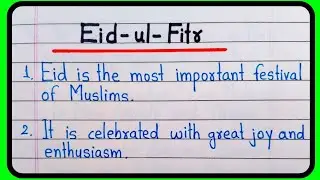 Eid-ul-Fitr
1. Eid is the most important festival
of Muslims.
2. It is celebrated with great joy and
enthusiasm.